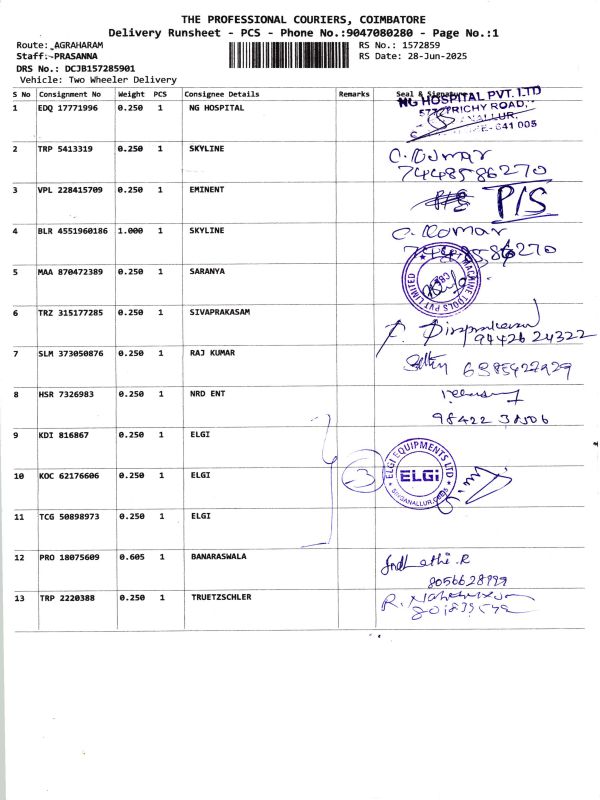 THE PROFESSIONAL COURIERS, COIMBATORE
Delivery Runsheet - PCS - Phone No.:9047080280 - Page No.:1
Route: AGRAHARAM RS No.: 1572859
Staff: PRASANNA RS Date: 28-Jun-2025
DRS No.: DCJB157285901
Vehicle: Two Wheeler Delivery
S No Consignment No Weight PCS Consignee Details Remarks Seal & Signature
1 EDQ 17771996 0.250 1 NG HOSPITAL NG HOSPITAL PVT. LTD
577, TRICHY ROAD,
641 005
2 TRP 5413319 0.250 1 SKYLINE C. Kumar
7448586270
3 VPL 228415709 0.250 1 EMINENT P/S
4 BLR 4551960186 1.000 1 SKYLINE C. Kumar
7448586270
5 MAA 870472389 0.250 1 SARANYA MACHINE TOOLS PVT LIMITED
6 TRZ 315177285 0.250 1 SIVAPRAKASAM
9442624322
7 SLM 373050876 0.250 1 RAJ KUMAR 6385427929
8 HSR 7326983 0.250 1 NRD ENT
98422
9 KDI 816867 0.250 1 ELGI
10 KOC 62176606 0.250 1 ELGI 3 ELGI EQUIPMENTS LTD
ELGi
SINGANALLUR
11 TCG 50898973 0.250 1 ELGI
12 PRO 18075609 0.605 1 BANARASWALA
8056628999
13 TRP 2220388 0.250 1 TRUETZSCHLER